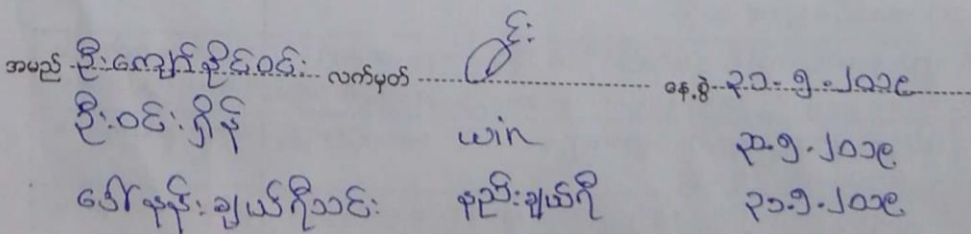 အမည် ဦးကျော်နိုင်ဝင်း လက်မှတ် နေ့စွဲ ၃၁-၅-၂၀၁၉
ဦးဝင်းရှိန် win ၃၁.၅.၂၀၁၉
ဒေါ်နန်းချယ်ရီသင်း နည်းချယ်ရီ ၃၁.၅.၂၀၁၉